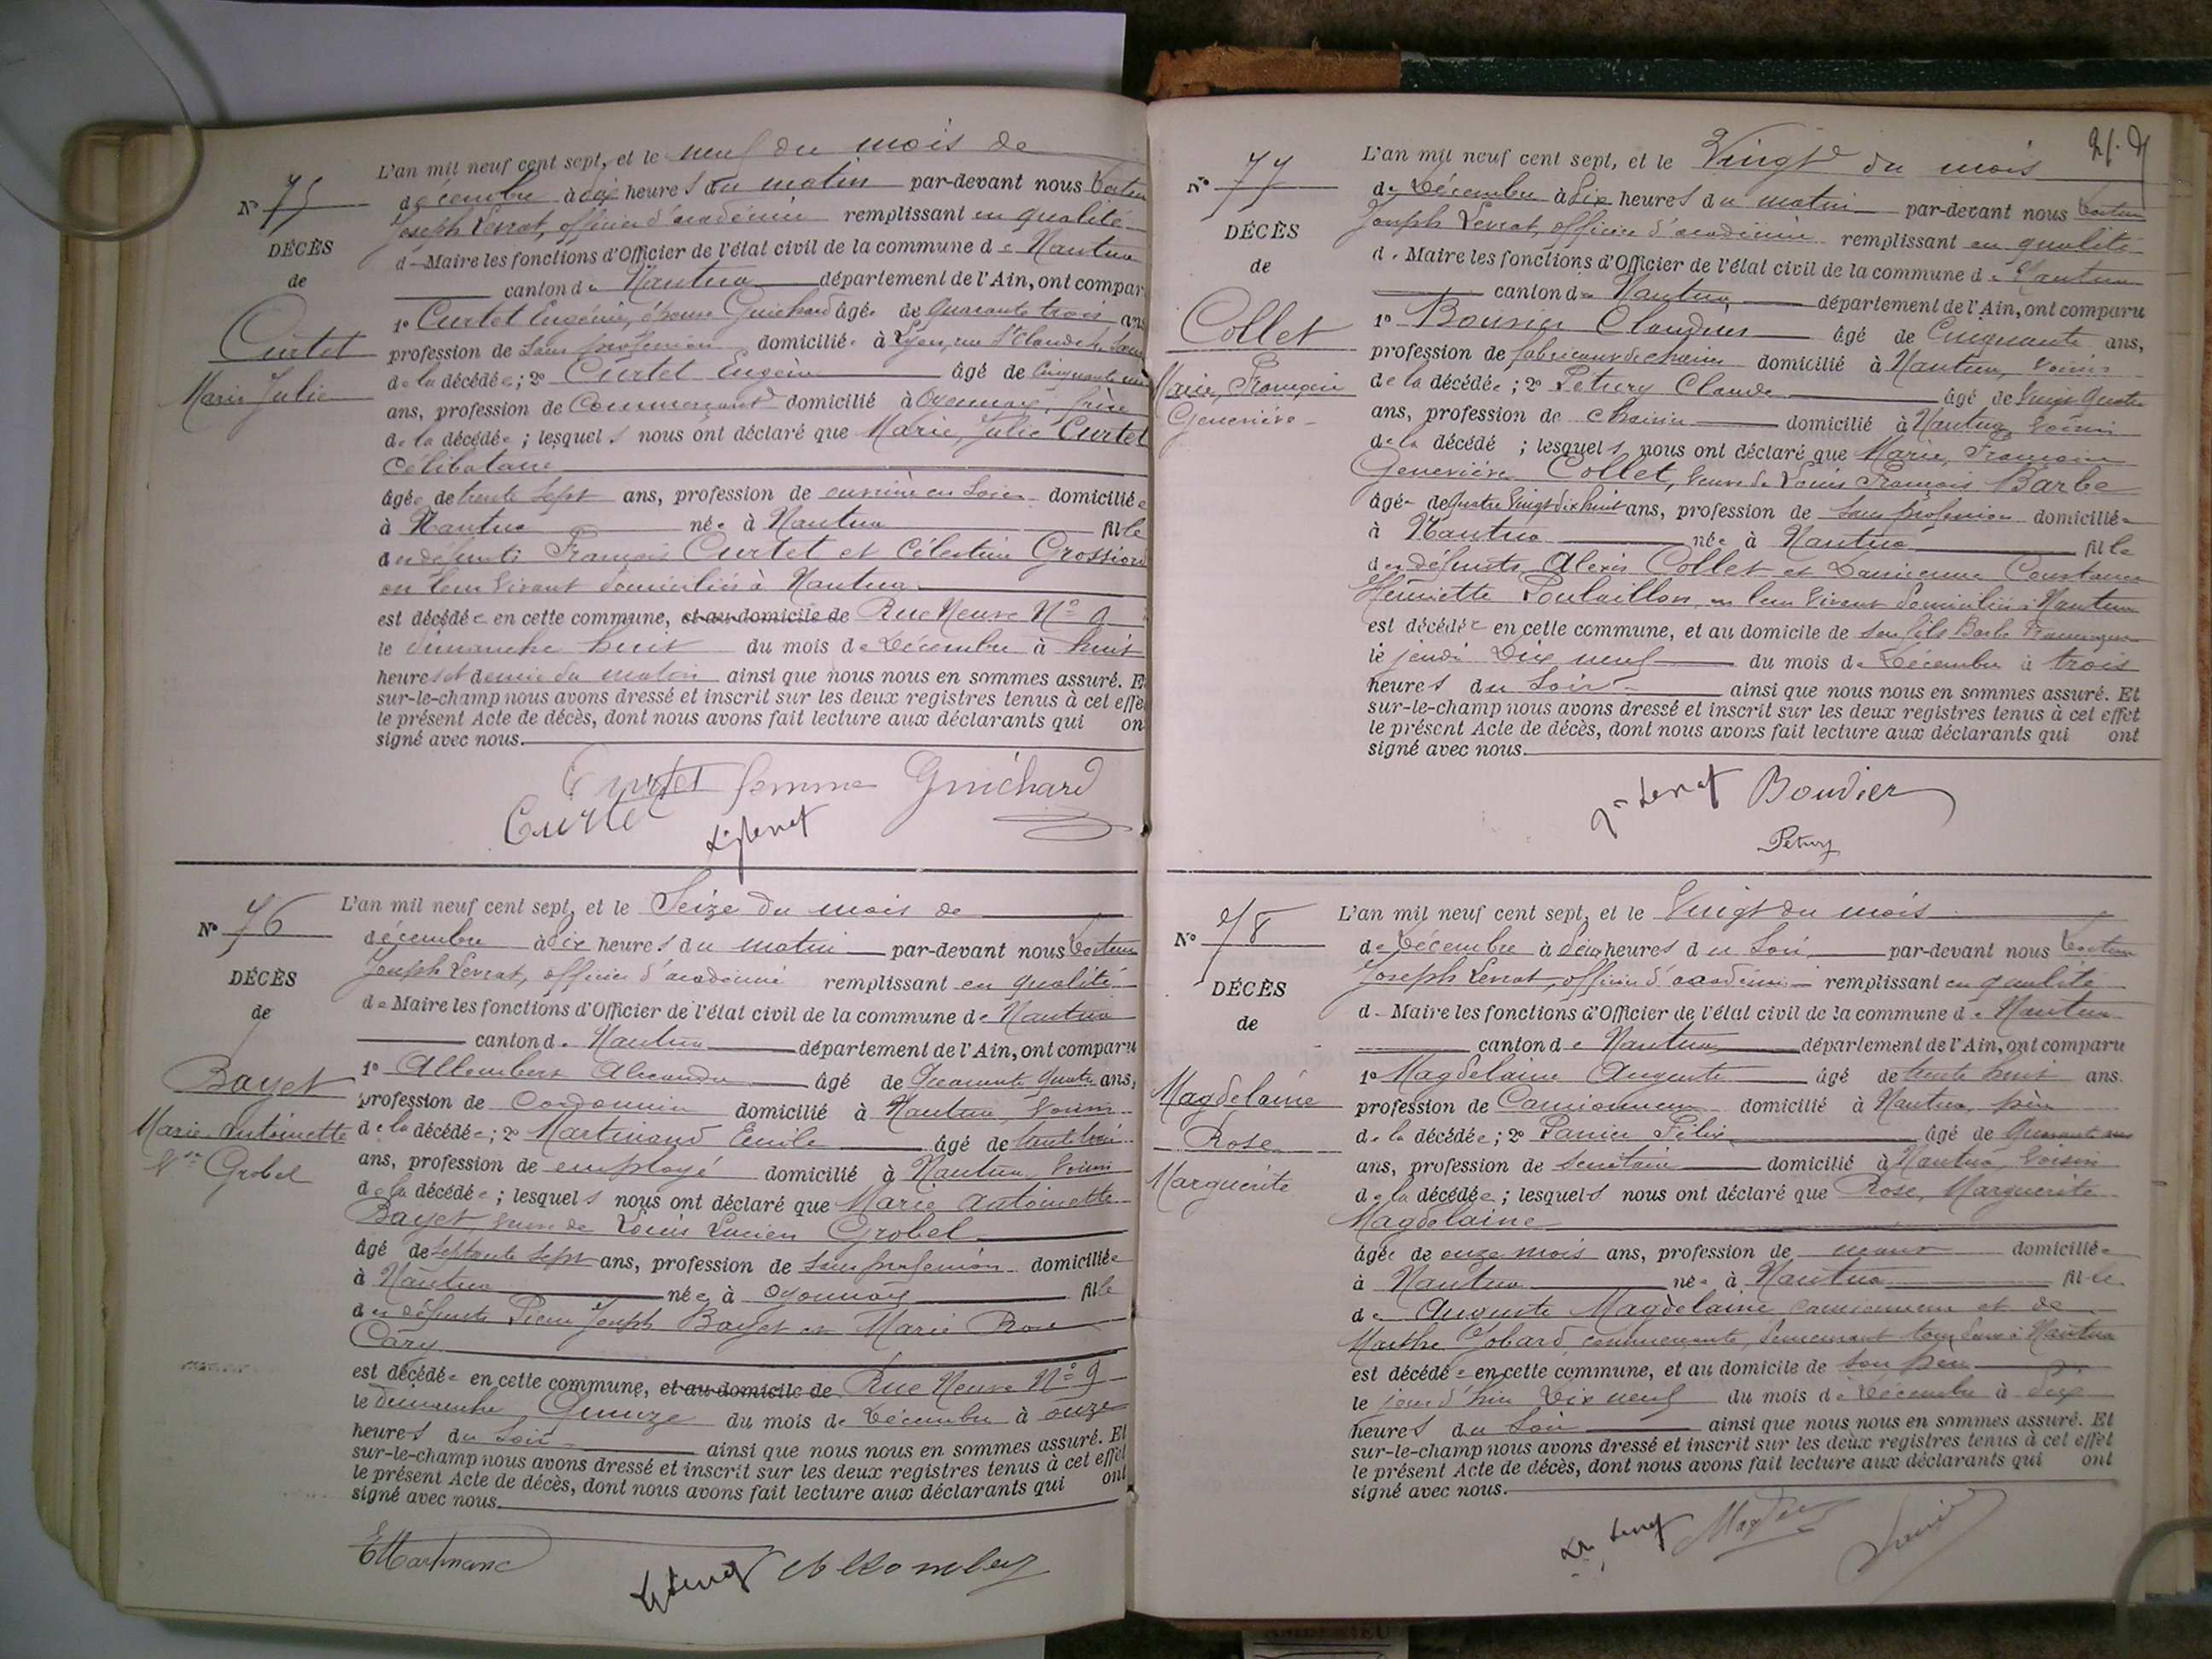 L'an mil neuf cent sept, et le neuf du mois de
N° 75
décembre à dix heures du matin par-devant nous
Joseph Levrat, officier d'académie remplissant en qualité
DÉCÈS
de Maire les fonctions d'Officier de l'état civil de la commune de Nantua
de
canton de Nantua département de l'Ain, ont compar
1° Curtet Eugénie, épouse Guichard âgée de quarante trois ans
Curtet
profession de sans profession domiciliée à Lyon, rue St Claude
Marie Julie
de la décédée; 2° Curtet Eugène âgé de Cinquante un
ans, profession de Commerçant domicilié à Oyonnax, frère
de la décédée; lesquels nous ont déclaré que Marie, Julie Curtet
Célibataire
âgée de trente sept ans, profession de ouvrière en soie domiciliée
à Nantua née à Nantua fille
des défunts François Curtet et Célestine Grossiord
en leur vivant domiciliés à Nantua
est décédée en cette commune, et au domicile de Rue Neuve N° 9
le dimanche huit du mois de Décembre à huit
heures et demie du matin ainsi que nous nous en sommes assuré. E
sur-le-champ nous avons dressé et inscrit sur les deux registres tenus à cet effe
le présent Acte de décès, dont nous avons fait lecture aux déclarants qui on
signé avec nous.
Curtet femme Guichard
Curtet
L'an mil neuf cent sept, et le Seize du mois de
N° 76
décembre à dix heures du matin par-devant nous
Joseph Levrat, officier d'académie remplissant en qualité
DÉCÈS
de Maire les fonctions d'Officier de l'état civil de la commune de Nantua
de
canton de Nantua département de l'Ain, ont comparu
1° Allombert Alexandre âgé de Quarante quatre ans,
Bayet
profession de Cordonnier domicilié à Nantua, voisin
Marie Antoinette
de la décédée; 2° Martinand Emile âgé de
Vve Grobel
ans, profession de employé domicilié à Nantua, voisin
de la décédée; lesquels nous ont déclaré que Marie Antoinette
Bayet veuve de Louis Lucien Grobel
âgé de septante sept ans, profession de sans profession domiciliée
à Nantua née à Oyonnax fille
des défunts Pierre Joseph Bayet et Marie Rose
Cary
est décédée en cette commune, et au domicile de Rue Neuve N° 9
le dimanche Quinze du mois de Décembre à onze
heures du soir ainsi que nous nous en sommes assuré. Et
sur-le-champ nous avons dressé et inscrit sur les deux registres tenus à cet effet
le présent Acte de décès, dont nous avons fait lecture aux déclarants qui ont
signé avec nous.
E Martinand
L'an mil neuf cent sept, et le Vingt du mois
N° 77
de Décembre à dix heures du matin par-devant nous
Joseph Levrat, officier d'académie remplissant en qualité
DÉCÈS
de Maire les fonctions d'Officier de l'état civil de la commune de Nantua
de
canton de Nantua département de l'Ain, ont comparu
Collet
1° Bouvier Claudius âgé de Cinquante ans,
Marie, Françoise
profession de fabricant de chaises domicilié à Nantua, voisin
Geneviève
de la décédée; 2° Petruz Claude âgé de vingt quatre
ans, profession de chaisier domicilié à Nantua, voisin
de la décédé ; lesquels nous ont déclaré que Marie, Françoise
Geneviève Collet, veuve de Louis François Barbe
âgée de quatre vingt dix huit ans, profession de sans profession domiciliée
à Nantua née à Nantua fille
des défunts Alexis Collet et Constance
Henriette Poulaillon, en leur vivant domiciliés à Nantua
est décédée en cette commune, et au domicile de son fils Barbe
le jeudi Dix neuf du mois de Décembre à trois
heures du soir ainsi que nous nous en sommes assuré. Et
sur-le-champ nous avons dressé et inscrit sur les deux registres tenus à cet effet
le présent Acte de décès, dont nous avons fait lecture aux déclarants qui ont
signé avec nous.
Bouvier
Petruz
L'an mil neuf cent sept, et le Vingt du mois
N° 78
de Décembre à deux heures du soir par-devant nous
Joseph Levrat, officier d'académie remplissant en qualité
DÉCÈS
de Maire les fonctions d'Officier de l'état civil de la commune de Nantua
de
canton de Nantua département de l'Ain, ont comparu
Magdelaine
1° Magdelaine Auguste âgé de trente huit ans.
Rose
profession de Camionneur domicilié à Nantua, père
Marguerite
de la décédée; 2° Félix âgé de Quarante
ans, profession de secrétaire domicilié à Nantua, voisin
de la décédée; lesquels nous ont déclaré que Rose, Marguerite
Magdelaine
âgée de onze mois ans, profession de domiciliée
à Nantua née à Nantua fille
de Auguste Magdelaine camionneur et de
Marthe Gobard, commerçante, demeurant tous deux à Nantua
est décédée en cette commune, et au domicile de son père
le jour d'hier Dix neuf du mois de Décembre à dix
heures du soir ainsi que nous nous en sommes assuré. Et
sur-le-champ nous avons dressé et inscrit sur les deux registres tenus à cet effet
le présent Acte de décès, dont nous avons fait lecture aux déclarants qui ont
signé avec nous.